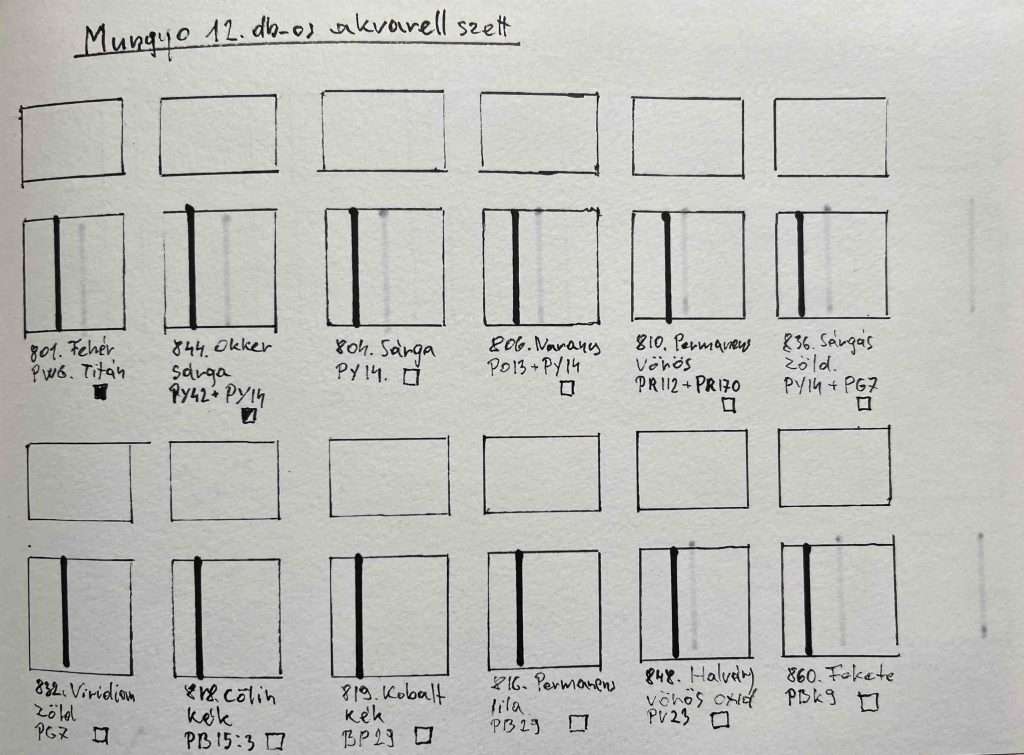 Mungyo 12. db-os akvarell szett
801. Fehér
PW6. Titán
844. Okker
Sárga
PY42 + PY14
804. Sárga
PY14.
806. Narancs
PO13 + PY14
810. Permanens
Vörös
PR112 + PR170
836. Sárgás
Zöld.
PY14 + PG7
832. Viridian
Zöld
PG7
818. Cölin
Kék
PB15:3
819. Kobalt
Kék
BP29
816. Permanens
lila
PB29
848. Halvány
vörös oxid
PV23
860. Fekete
PBk9